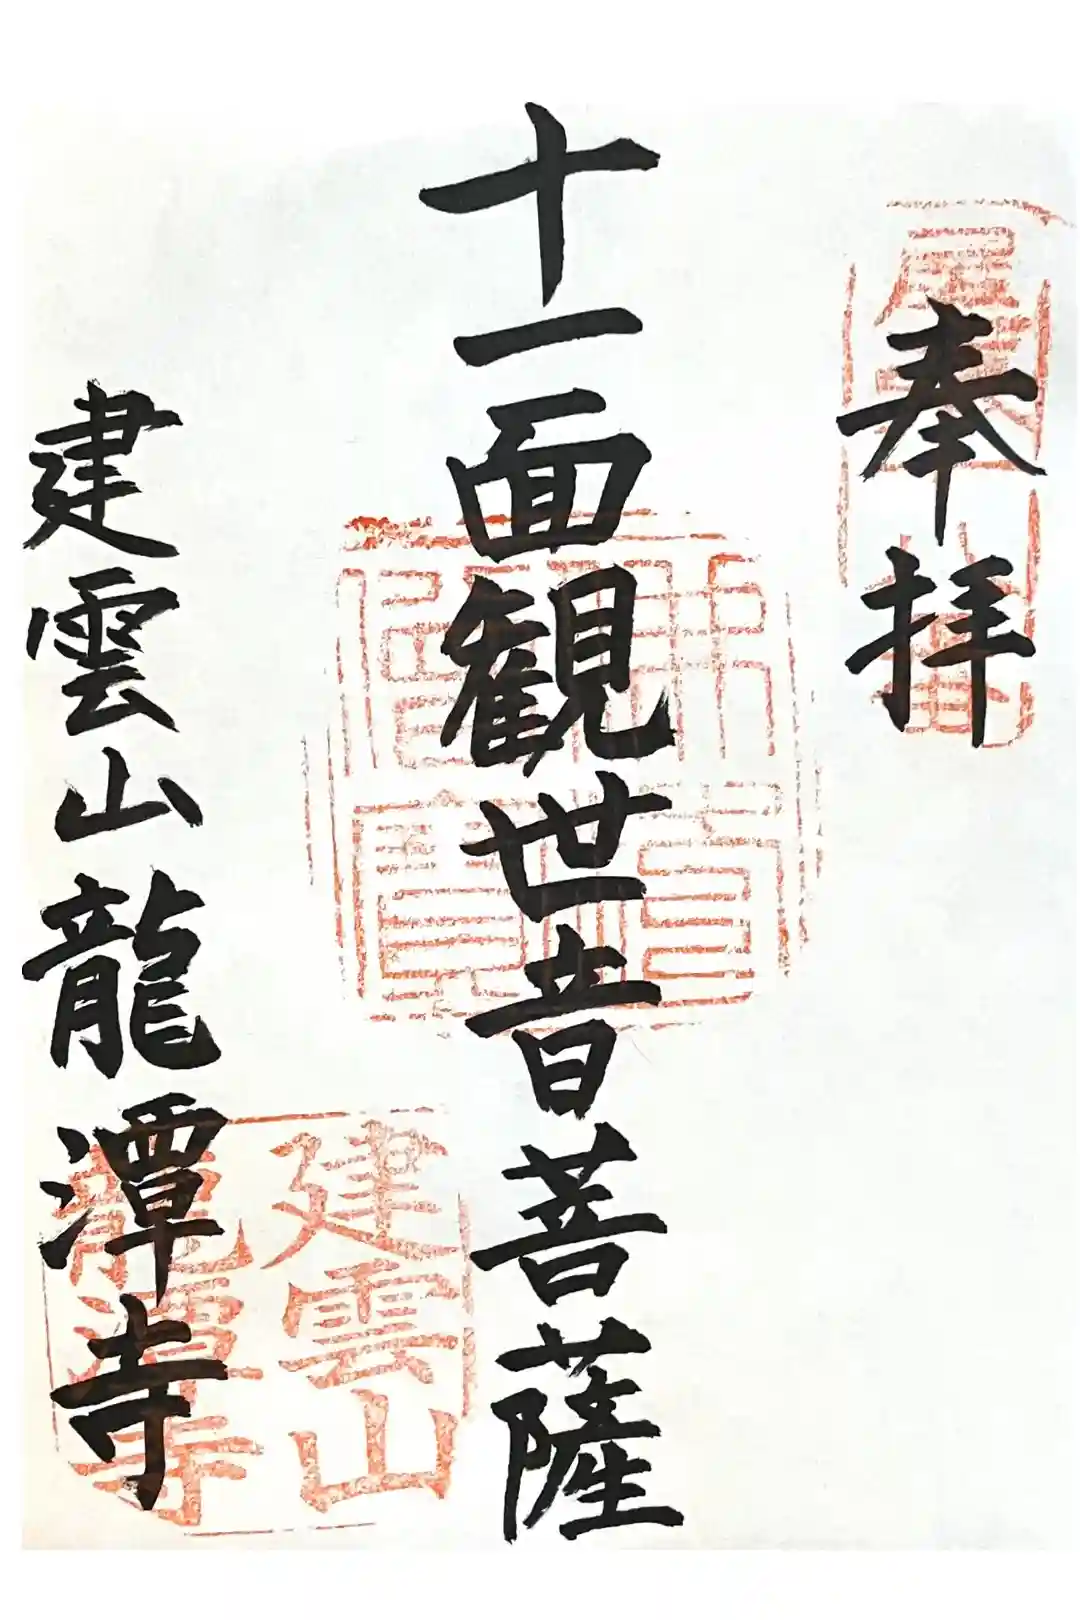 奉拝
十一面観世音菩薩
建雲山龍潭寺
佛法僧寶
建雲山
龍潭寺